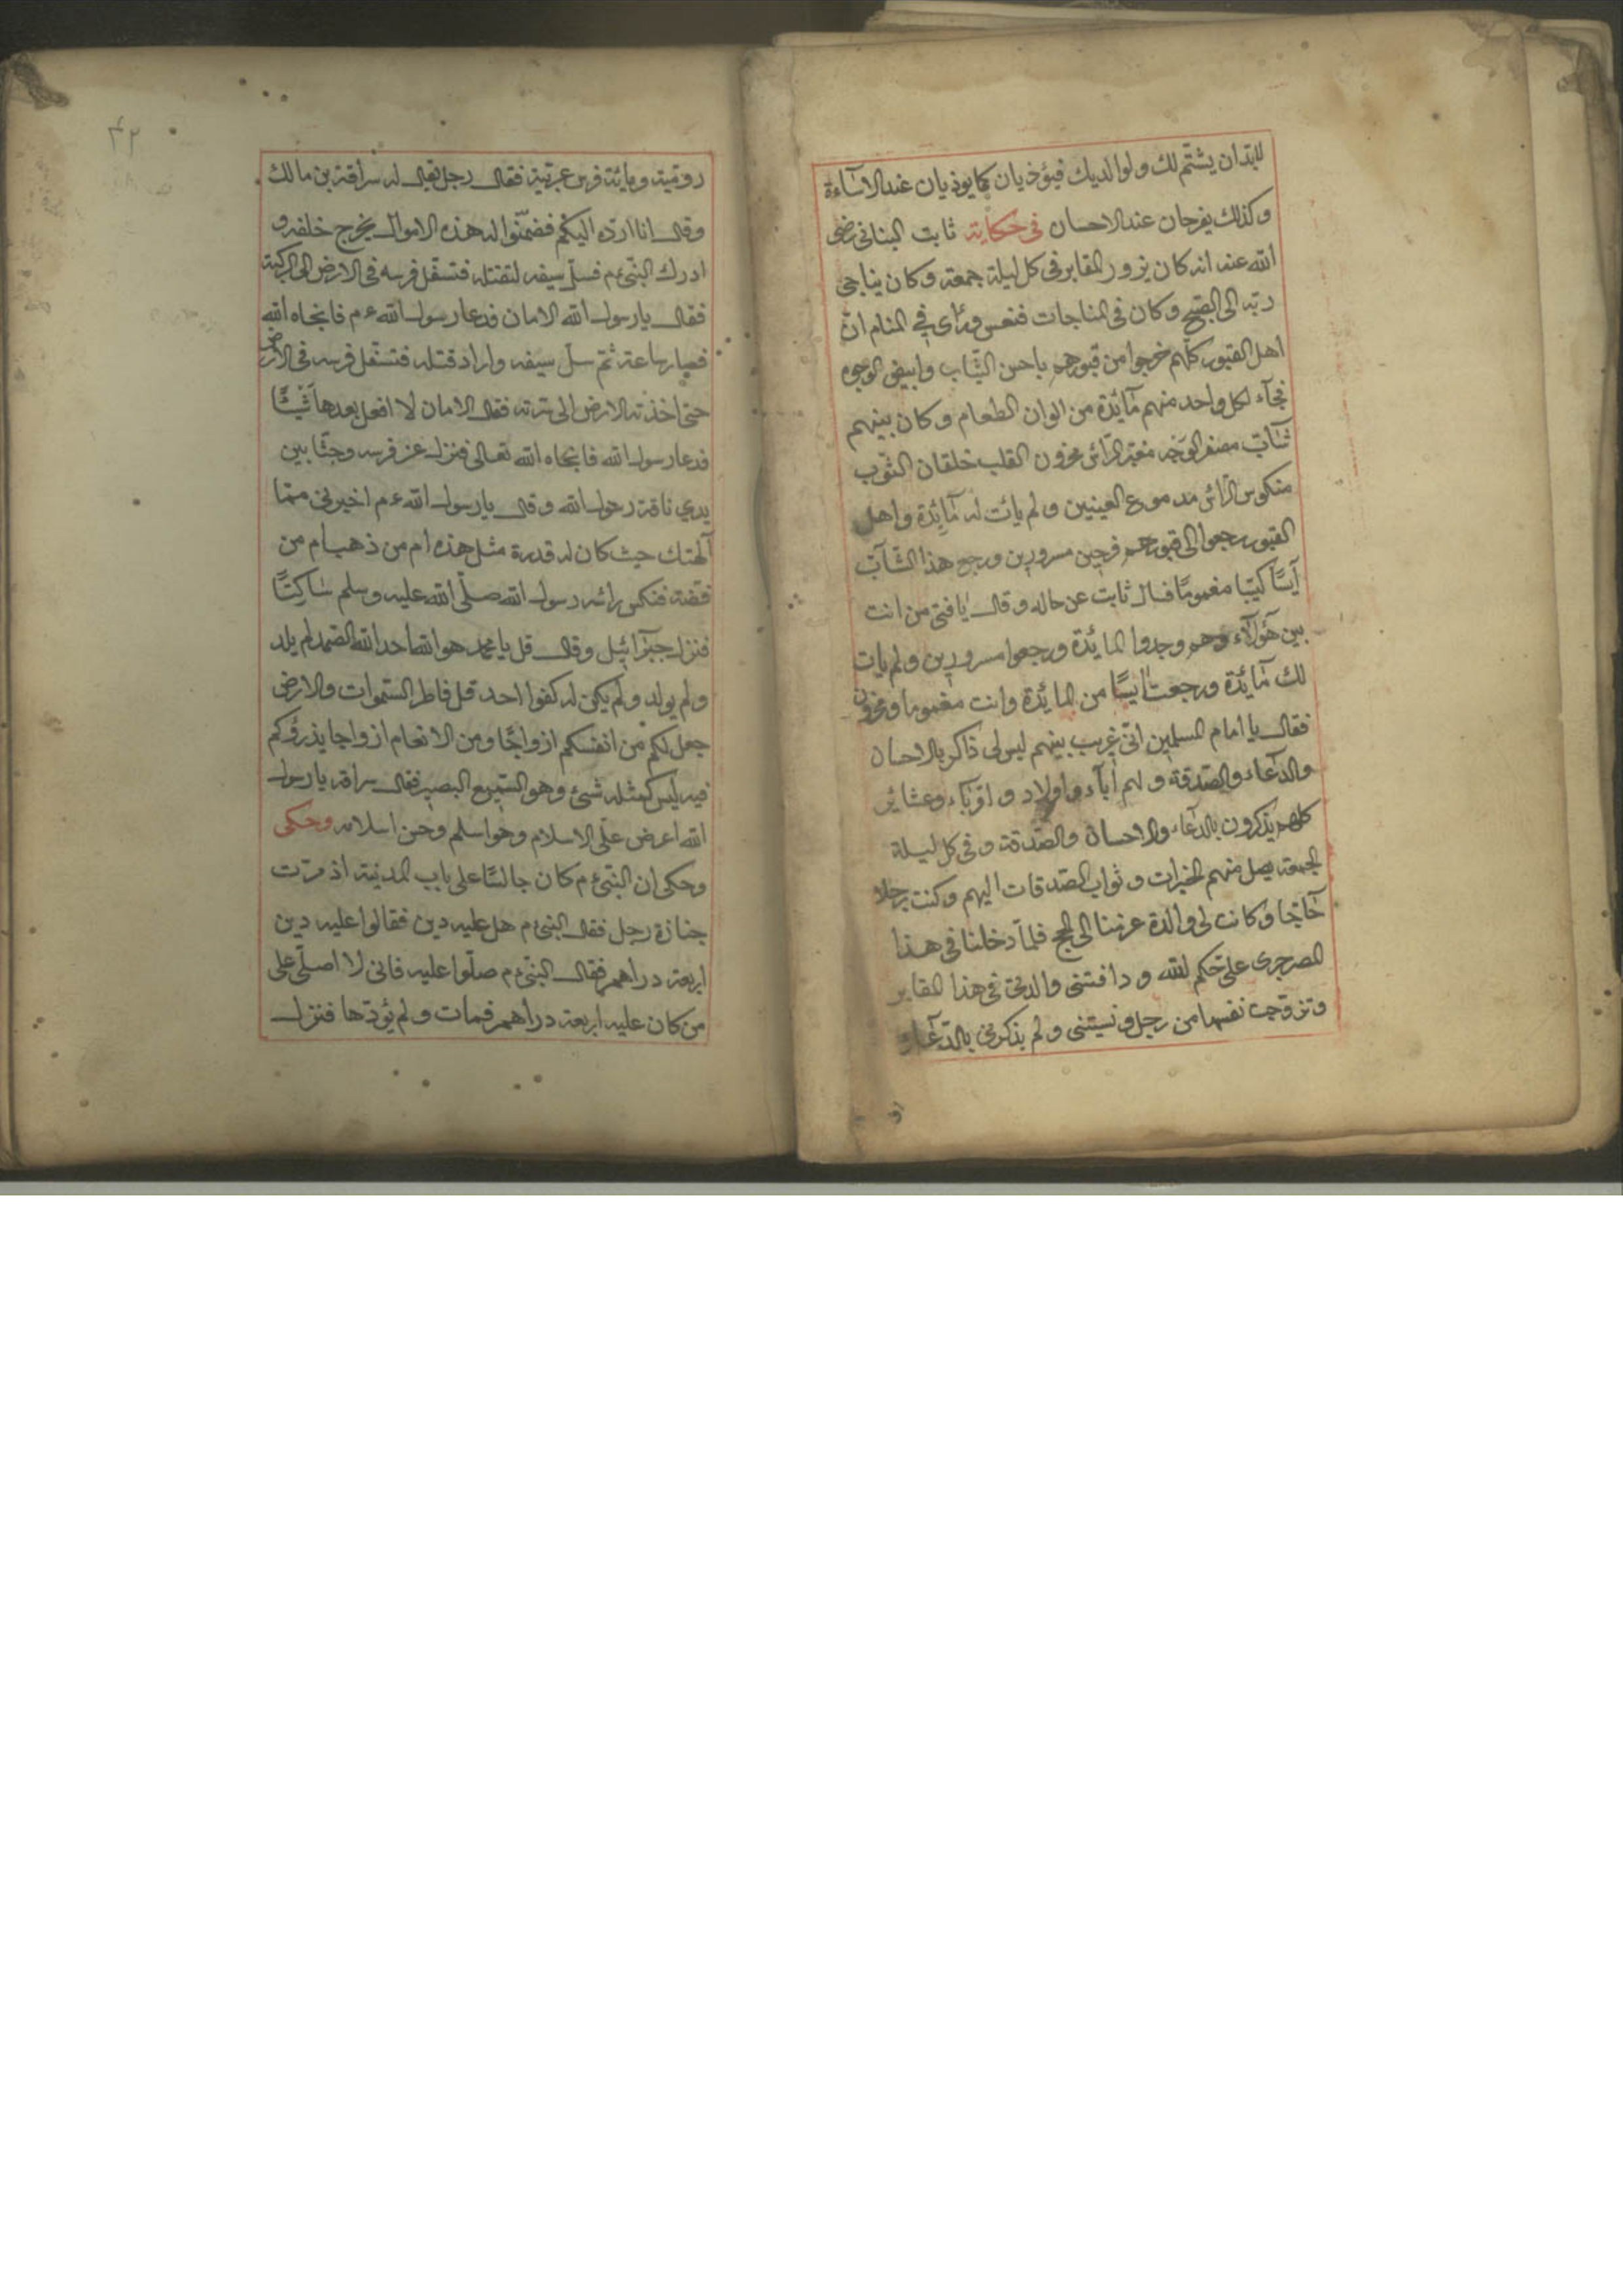 لابد ان يشتم لك ولوالديك فيؤذيان كما يوذيان عند الاساءة
وكذلك يفرحان عند الاحسان فى حكاية ثابت البنانى رضى
الله عنه انه كان يزور المقابر فى كل ليلة جمعة وكان يناجى
ربه الى الصبح وكان فى المناجات فنعس ورأى فى المنام ان
اهل القبور كلهم خرجوا من قبورهم باحسن الثياب وابيض الوجوه
فجاء لكل واحد منهم مائدة من الوان الطعام وكان بينهم
شاب مصفر الوجه مغبر الرأس محزون القلب خلقان الثوب
منكوس الرأس مدموع العينين ولم يأت له مائدة واهل
القبور رجعوا الى قبورهم فرحين مسرورين ورجع هذا الشاب
آيسا كئيبا مغموما فسال ثابت عن حاله وقال يا فتى من انت
بين هؤلاء وهم وجدوا المائدة ورجعوا مسرورين ولم يات
لك مائدة ورجعت آيسا من المائدة وانت مغموما ومحزون
فقال يا امام المسلمين انى غريب بينهم ليس لى ذاكر بالاحسان
والدعاء والصدقة ولهم آباء واولاد واقرباء وعشائر
كلهم يذكرون بالدعاء والاحسان والصدقة وفى كل ليلة
الجمعة يصل منهم الخيرات وثواب الصدقات اليهم وكنت رجلا
حاجا وكانت لى والدة عزمنا الى الحج فلما دخلنا فى هذا
المصر جرى على حكم الله ودافنتنى والدتى فى هذا المقابر
وتزوجت نفسها من رجل ونسيتنى ولم يذكرنى بالدعاء و
٤٢
رومية ومائة فرس عربية فقال رجل يقال له سراقة بن مالك
وقال انا ارده اليكم فضمنوا له هذه الاموال يخرج خلفه و
ادرك النبى ءم فسل سيفه لتقتله فتسفل فرسه فى الارض الى الركبة
فقال يا رسول الله الامان فدعا رسول الله ءم فانجاه الله
فسار ساعة ثم سل سيفه واراد قتله فتسفل فرسه فى الارض
حتى اخذته الارض الى سرته فقال الامان لا افعل بعدها شيئا
فدعا رسول الله فانجاه الله تعالى فنزل عن فرسه وجثا بين
يدي ناقة رسول الله وقال يا رسول الله ءم اخبرنى مما
آلهتك حيث كان له قدرة مثل هذه ام من ذهب ام من
فضة فنكس رأسه رسول الله صلى الله عليه وسلم ساكتا
فنزل جبرائيل وقال قل يا محمد هو الله احد الله الصمد لم يلد
ولم يولد ولم يكن له كفوا احد قل فاطر السموات والارض
جعل لكم من انفسكم ازواجا ومن الانعام ازواجا يذرؤكم
فيه ليس كمثله شئ وهو السميع البصير فقال سراقه يا رسول
الله اعرض على الاسلام وهو اسلم وحسن اسلامه وحكى
وحكى ان النبى ءم كان جالسا على باب المدينة اذ مرت
جنازة رجل فقال النبى ءم هل عليه دين فقالوا عليه دين
اربعة دراهم فقال النبى ءم صلوا عليه فانى لا اصلى على
من كان عليه اربعة دراهم فمات ولم يؤدها فنزل